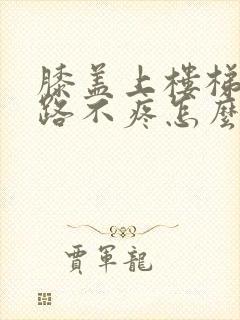 膝盖上樓梯
路不疼怎麼
賈軍龍